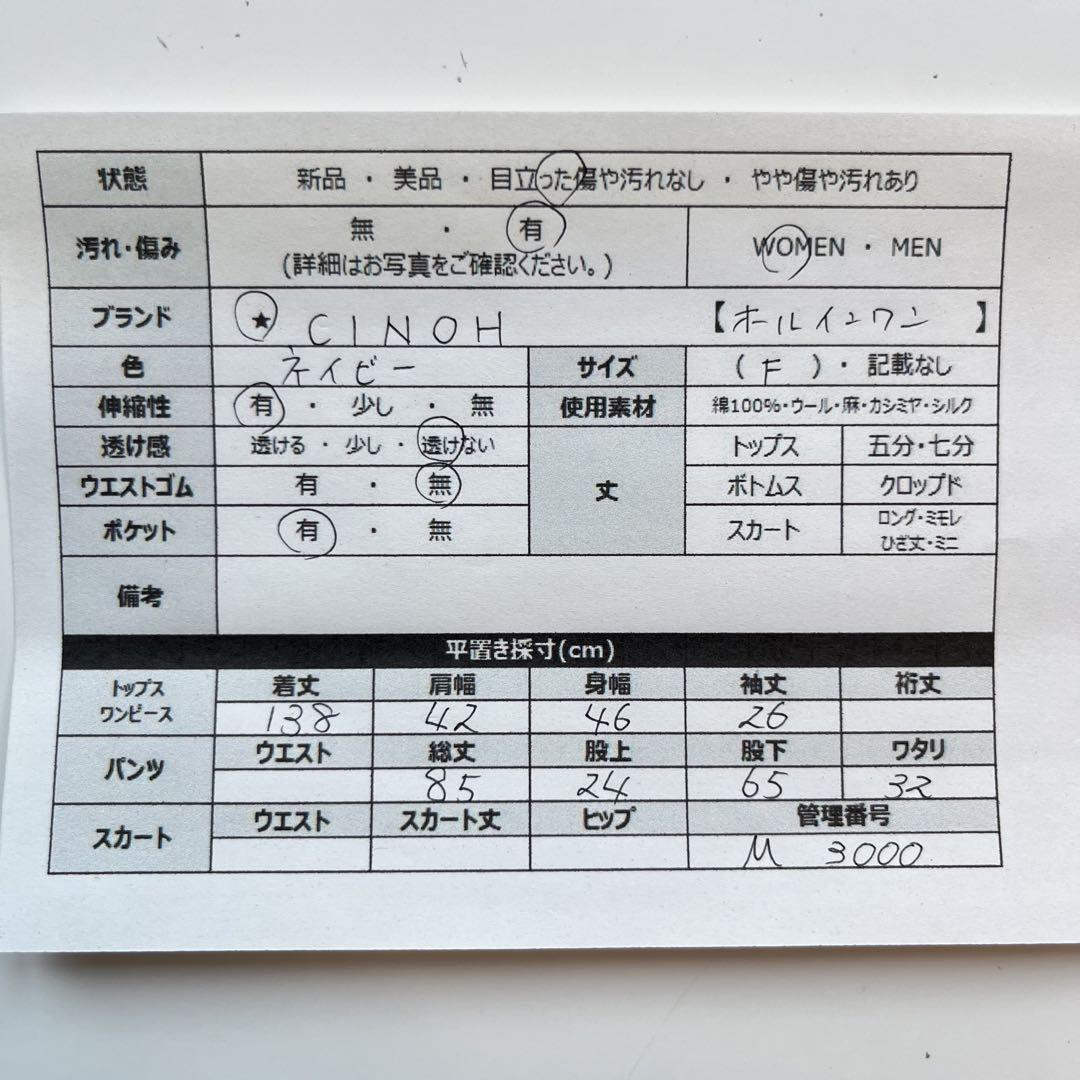 状態 新品 ・ 美品 ・ 目立った傷や汚れなし ・ やや傷や汚れあり
汚れ・傷み 無 ・ 有 WOMEN ・ MEN
(詳細はお写真をご確認ください。)
ブランド ★ CINOH 【オールインワン 】
色 ネイビー サイズ ( F ) ・ 記載なし
伸縮性 有 ・ 少し ・ 無 使用素材 綿100%・ウール・麻・カシミヤ・シルク
透け感 透ける ・ 少し ・ 透けない 丈 トップス 五分・七分
ウエストゴム 有 ・ 無 ボトムス クロップド
ポケット 有 ・ 無 スカート ロング・ミモレ
ひざ丈・ミニ
備考
平置き採寸(cm)
トップス
ワンピース 着丈 肩幅 身幅 袖丈 裄丈
138 42 46 26
パンツ ウエスト 総丈 股上 股下 ワタリ
85 24 65 32
スカート ウエスト スカート丈 ヒップ 管理番号
M 3000